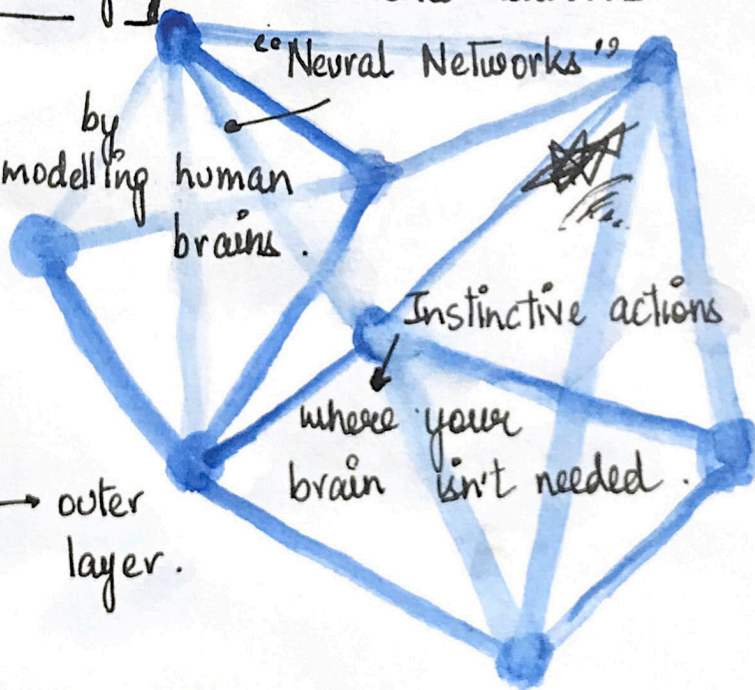 "Neural Networks"
by
modelling human
brains.
Instinctive actions
where your
brain isn't needed.
→ outer
layer.